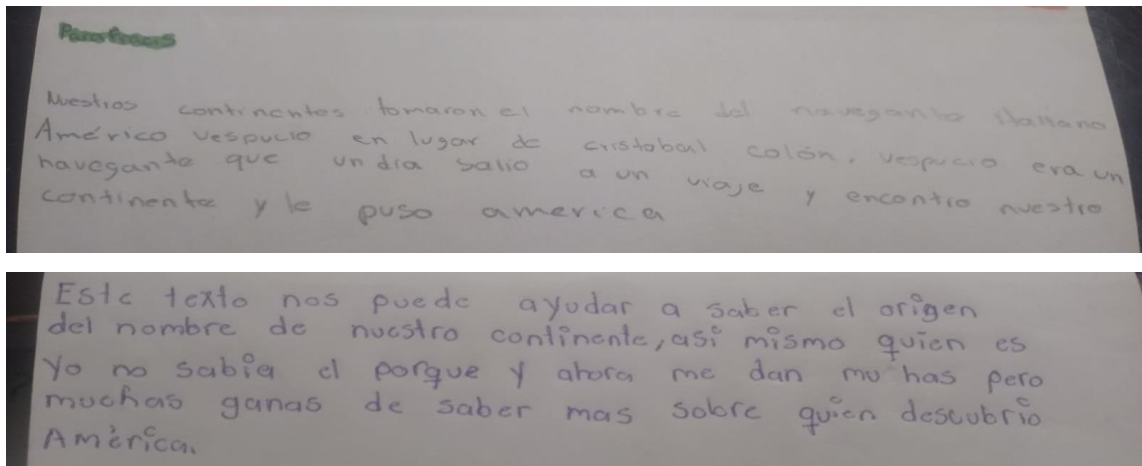 Parafrasis
Nuestros continentes tomaron el nombre del navegante italiano
Américo vespucio en lugar de cristobal colón, vespucio era un
navegante que un dia salio a un viaje y encontro nuestro
continente y le puso america
Este texto nos puede ayudar a saber el origen
del nombre de nuestro continente, asi mismo quien es
Yo no sabia el porque y ahora me dan mu has pero
muchas ganas de saber mas sobre quien descubrio
América.